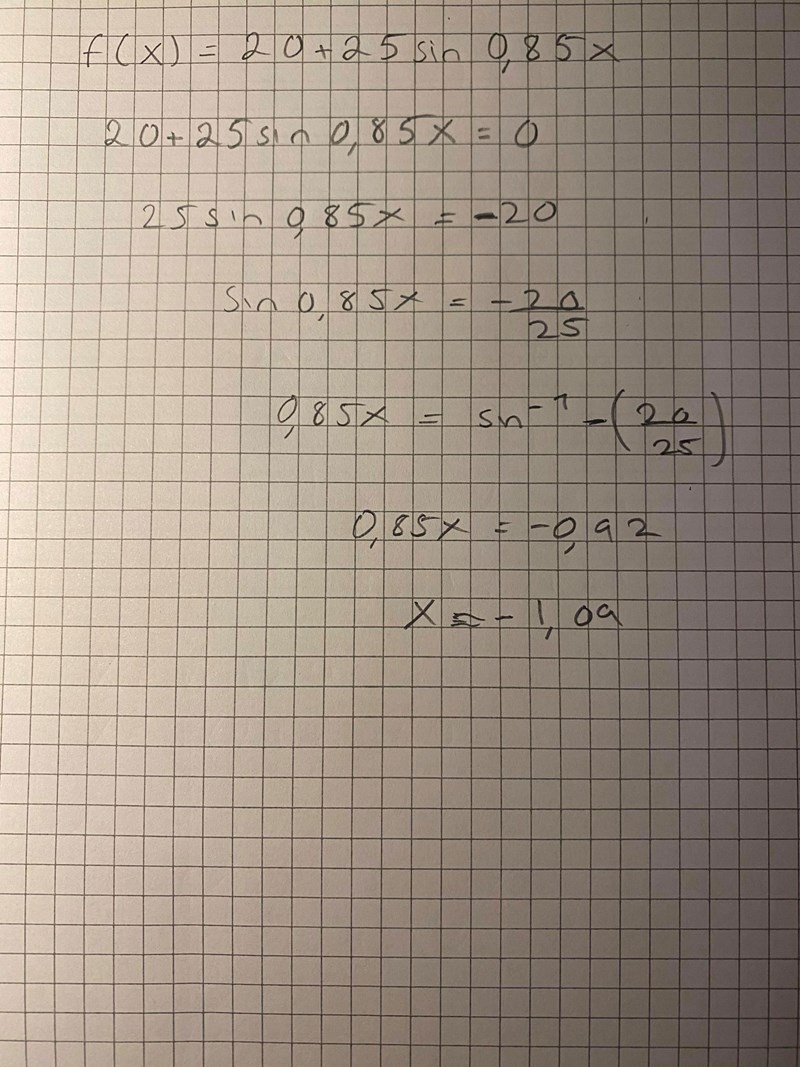 f(x) = 20+25 sin 0,85x
20+25 sin 0,85x = 0
25 sin 0,85x = -20
sin 0,85x = -20/25
0,85x = sin⁻¹ -(20/25)
0,85x = -0,92
x = -1,09